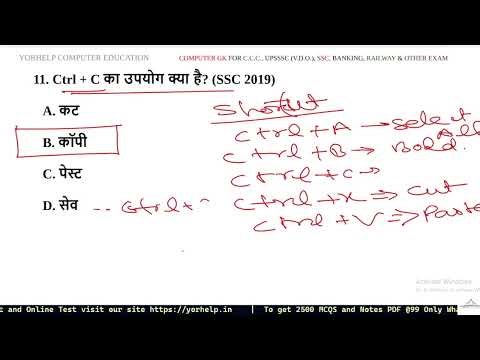 YORHELP COMPUTER EDUCATION
COMPUTER GK FOR C.C.C., UPSSSC (V.D.O.), SSC, BANKING, RAILWAY & OTHER EXAM
11. Ctrl + C का उपयोग क्या है? (SSC 2019)
A. कट
B. कॉपी
C. पेस्ट
D. सेव -- Ctrl +
Ctrl + A → Select All
Ctrl + B → Bold.
Ctrl + C →
Ctrl + X ⇒ Cut
Ctrl + V ⇒ Paste
Activate Windows
c and Online Test visit our site https://yorhelp.in | To get 2500 MCQS and Notes PDF @99 Only Wha